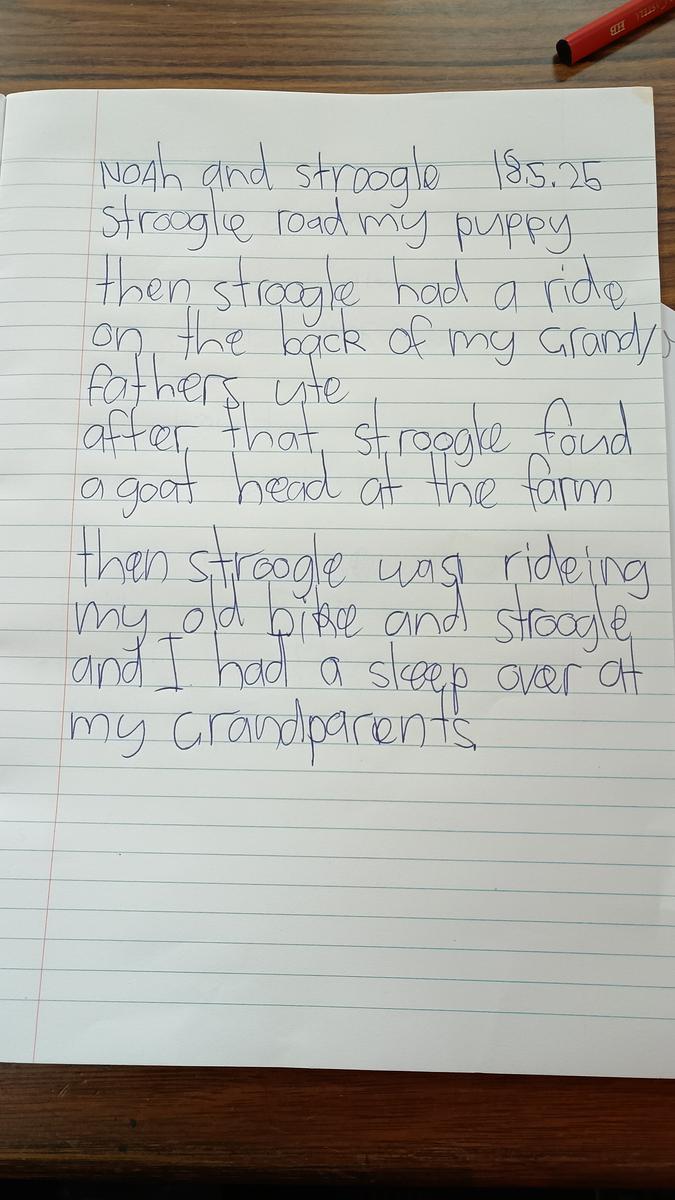 HB
NOAh and stroogle 18.5.25
stroogle road my puppy
then stroogle had a ride
on the back of my Grand/
fathers ute
after that stroogle foud
a goat head at the farm
then stroogle was rideing
my old bike and stroogle
and I had a sleep over at
my Grandparents